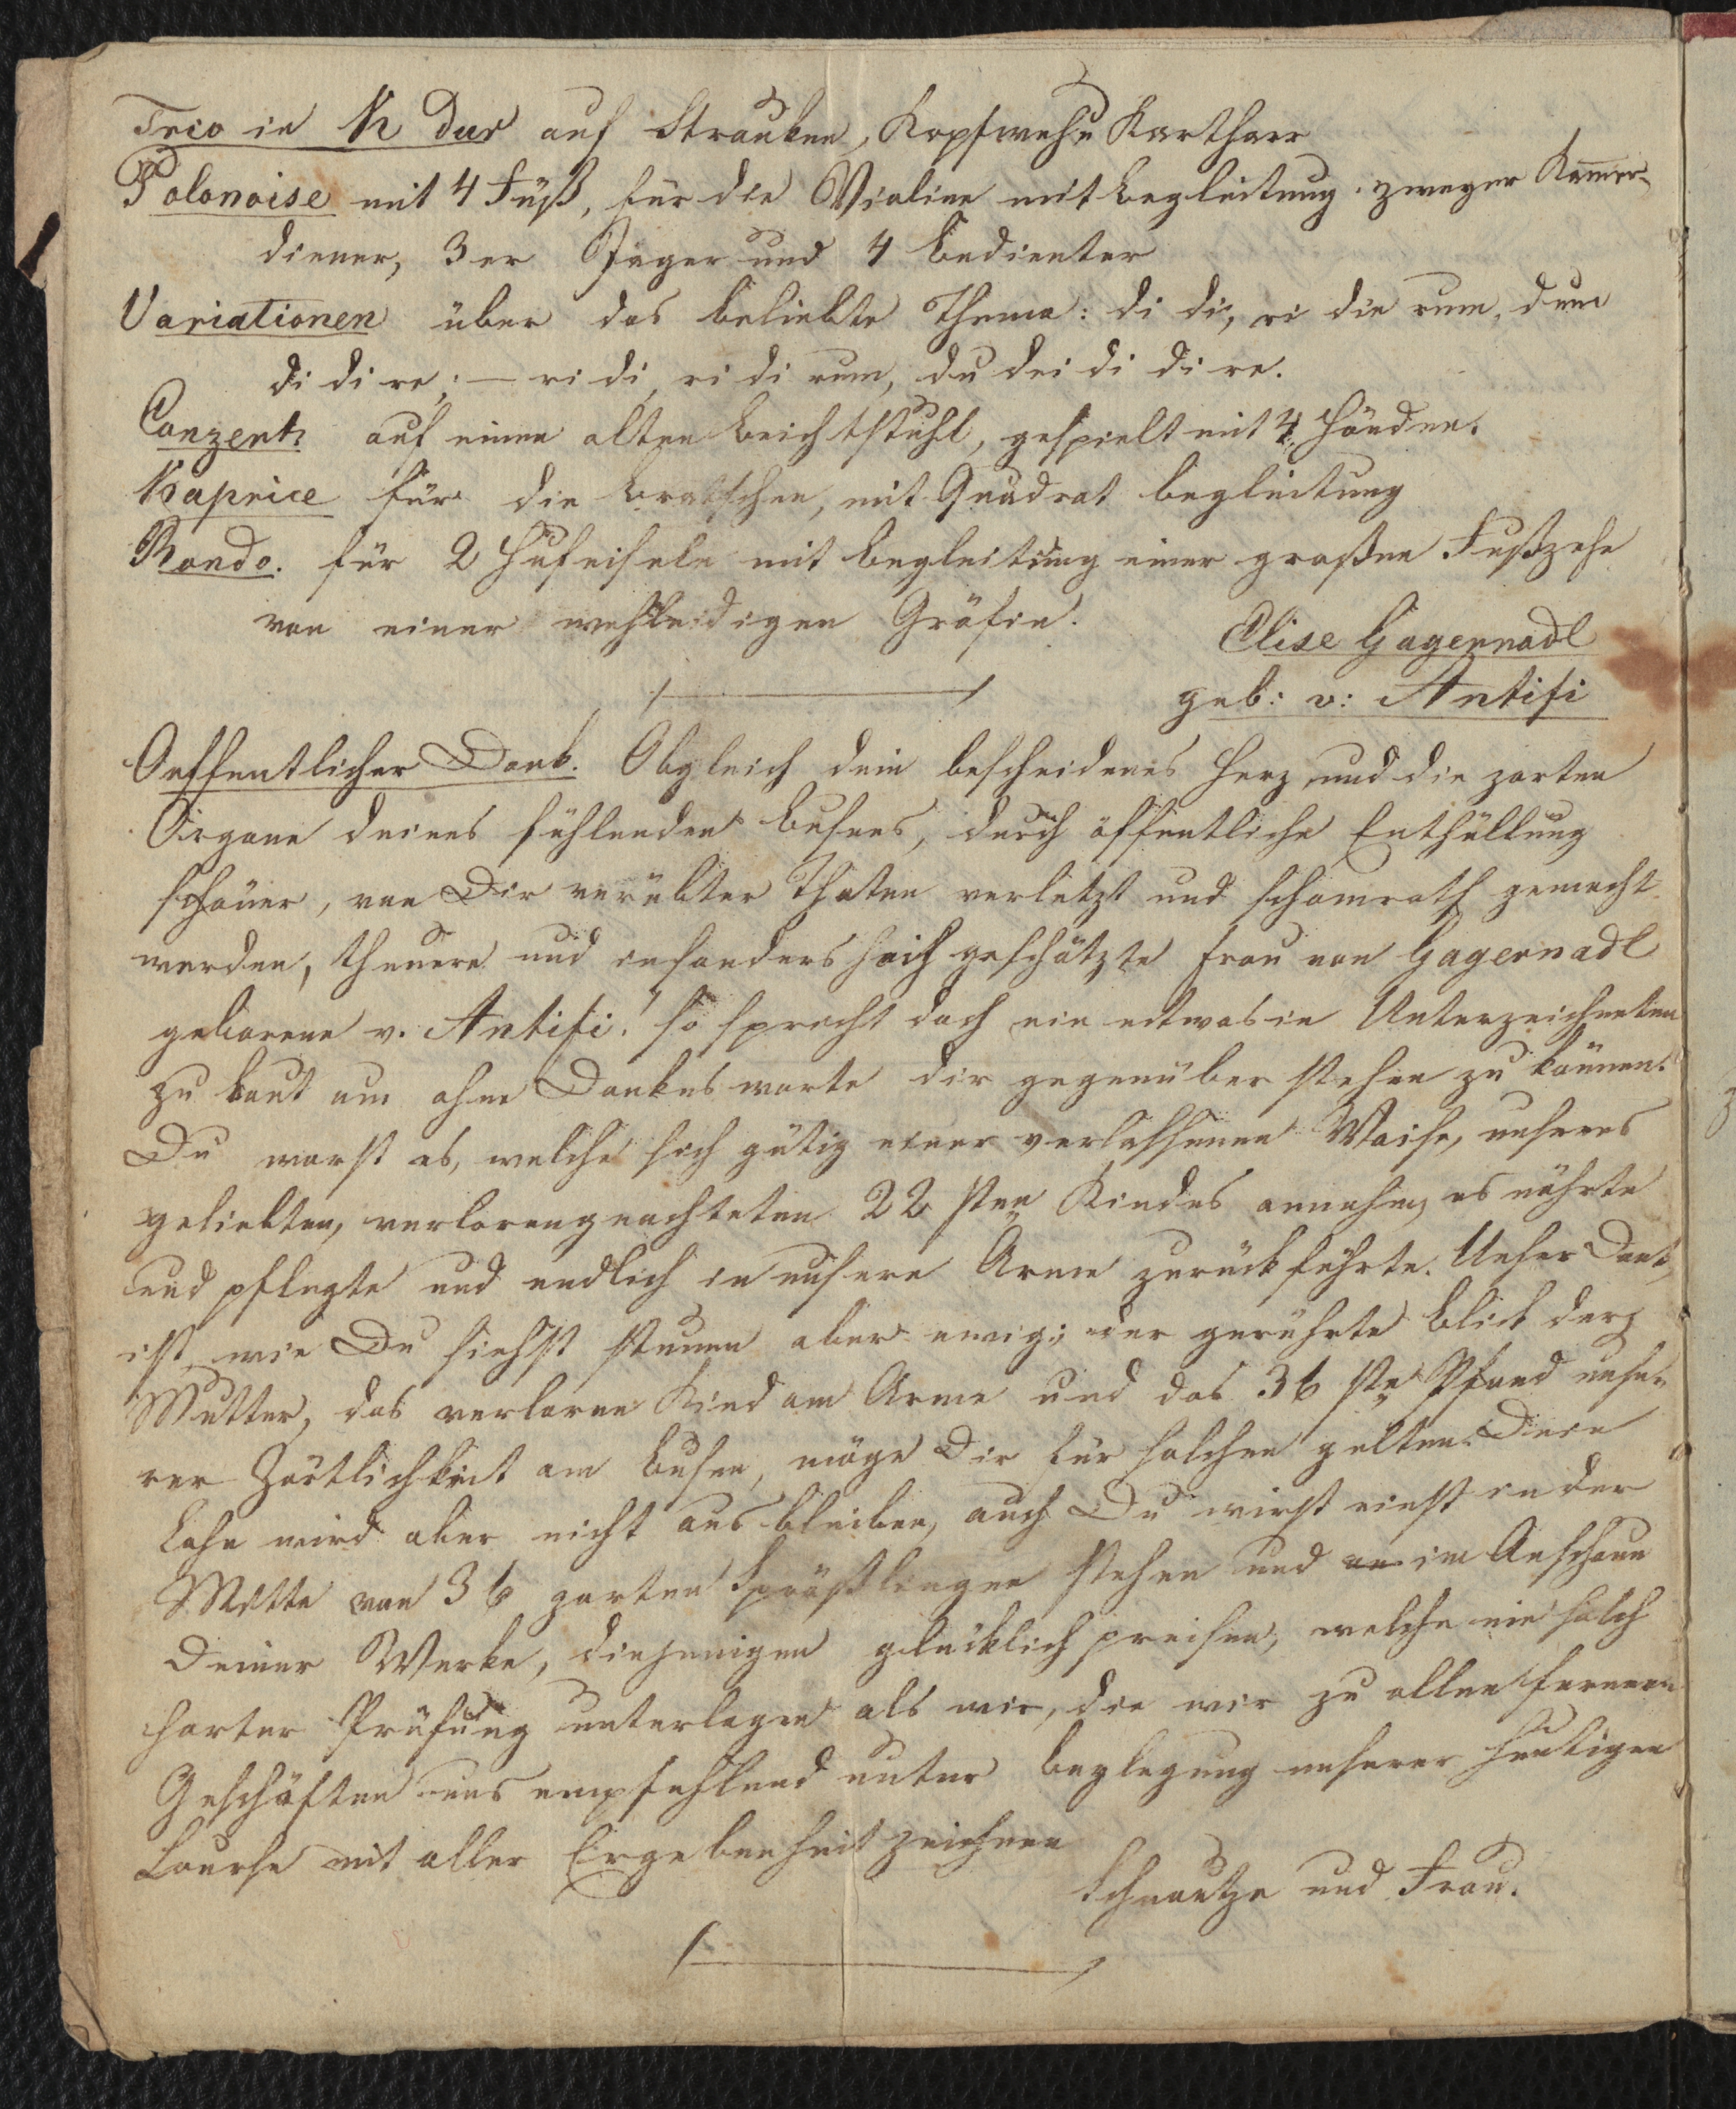 Trio in K dur auf Strauken, Kopfweh u Kartharr
Polonoise mit 4 Füß, für die Violine mit Begleitung zweyer Kam̄er-
diener, 3er Jäger und 4 Bedienter
Variationen über das beliebte Thema: di di, ri die rum, dum
di di re; — ri di ri di rum, du dei di di re.
Conzert auf einem alten Beichtstuhl, gespielt mit 4 Händen.
Kaprice für die Bratschen, mit Quadrat begleitung
Rondo. für 2 Hufeiseln mit Begleitung einer großen Fußzehe
von einer wehleidigen Gräfin.
Elise Gagernadl
geb: v: Antifi
Oeffentlicher Dank. Obgleich dein bescheidenes Herz und die zarten
Organe deines fühlenden Busens, durch öffentliche Enthüllung
schöner, von Dir verübter Thaten verletzt und schamroth gemacht
werden, theuere und insonders hoch geschätzte Frau von Gagernadl
geborene v. Antifi! so spricht doch ein etwas in Unterzeichneten
zu laut um ohne Dankesworte dir gegenüber stehen zu können.
Du warst es, welche sich gütig einer verlassenen Waise, unseres
geliebten, verlorengeachteten 22 sten Kindes annahm, es nährte
und pflegte und endlich in unsere Arme zurückführte. Unser Dank,
ist wie Du siehst stumm aber ewig; der gerührte Blick der
Mutter, das verlorne Kind am Arme und das 36 ste Pfand unse-
rer Zärtlichkeit am Busen, möge Dir für solchen gelten. Dein
Lohn wird aber nicht ausbleiben, auch Du wirst einst in der
Mitte von 36 zarten Sprößlingen stehen und im Anschaun
Deiner Werke, diejenigen glücklich preisen, welche nie solch
harter Prüfung unterlagen als wir, die wir zu allen fernern
Geschäften uns empfehlend unter Beylegung unserer heutigen
Course mit aller Ergebenheit zeichnen
Schnautze und Frau.